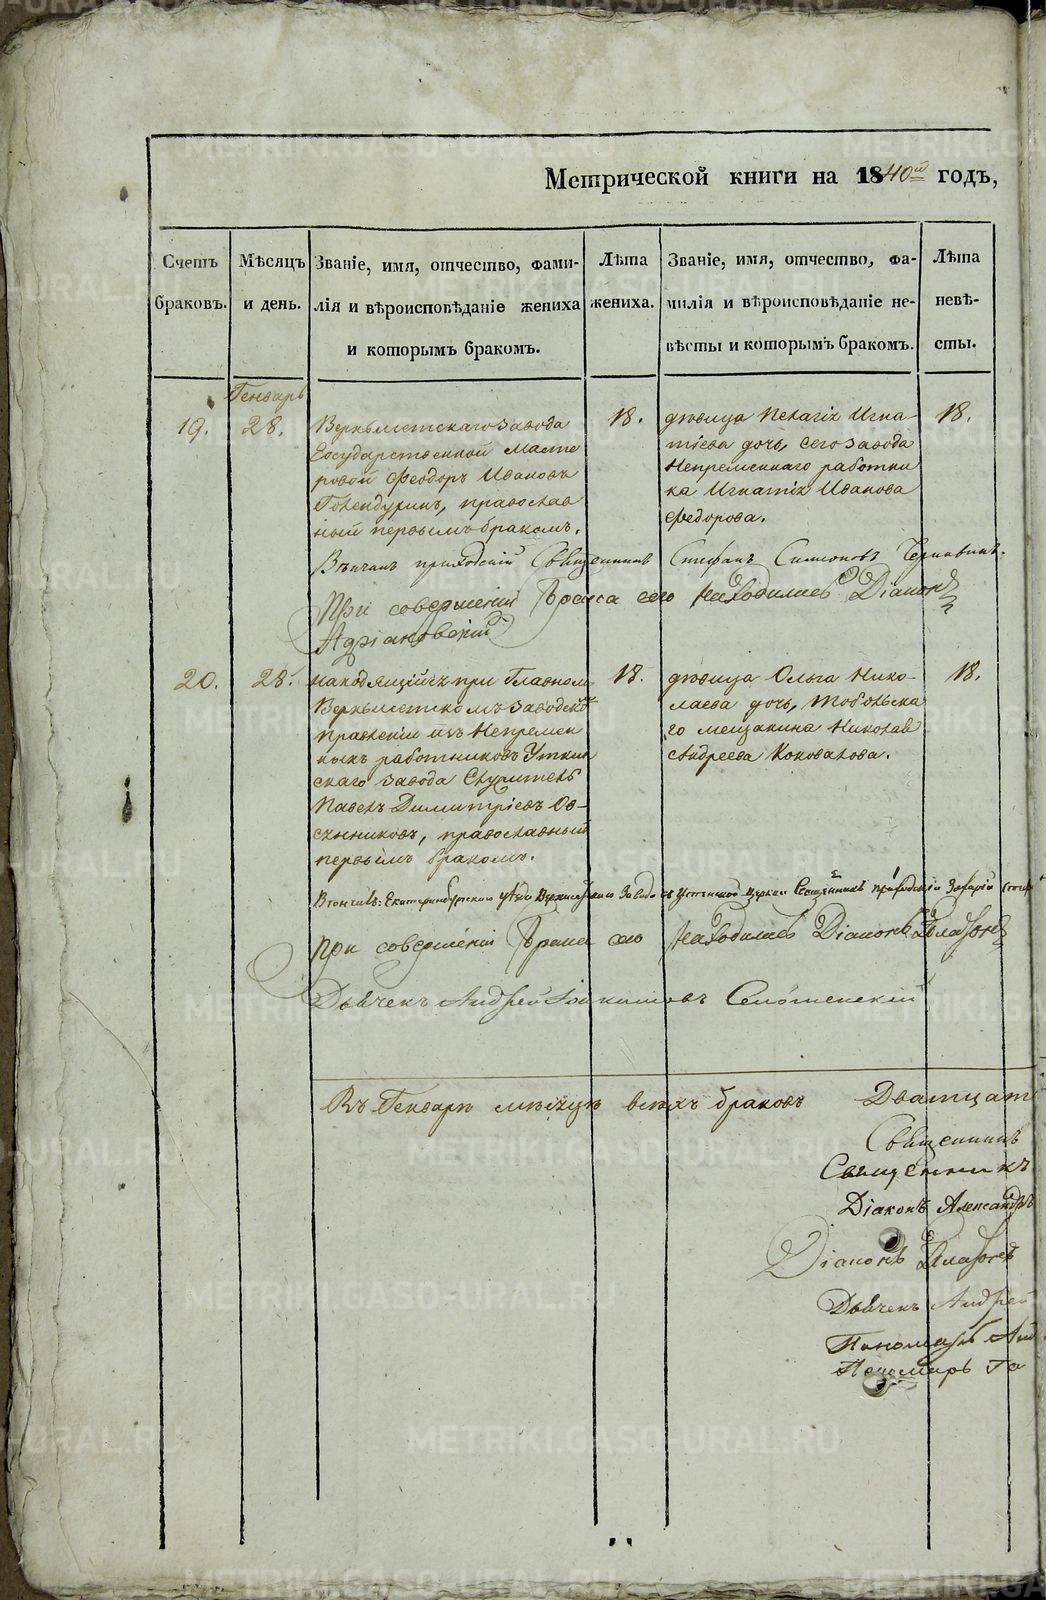 Метрической книги на 1840й годъ,
Счетъ браковъ.
Мѣсяцъ и день.
Званіе, имя, отчество, фами-
лія и вѣроисповѣданіе жениха
и которымъ бракомъ.
Лѣта жениха.
Званіе, имя, отчество, фа-
милія и вѣроисповѣданіе не-
вѣсты и которымъ бракомъ.
Лѣта невѣ-
сты.
Генварь
19.
28.
Верхъисетскаго завода
Государственной Масте
ровой Феодоръ Ивановъ
православ
ный первымъ бракомъ.
18.
дѣвица Пелагія Игна-
тіева дочь, сего завода
Непремѣннаго работни
ка Игнатія Иванова
Федорова.
18.
Вѣнчалъ приходскій Священникъ Стефанъ Симоновъ
При совершеніи Брака сего находились Діаконъ
Адріановскій
20.
28.
находящійся при Главном
Верхъисетскомъ заводско
правленіи изъ Непремен
ныхъ работниковъ Уткин
скаго завода Служитель
Павелъ Димитріевъ Ов-
сянниковъ, православный
первымъ бракомъ.
18.
дѣвица Ольга Нико-
лаева дочь, Тобольска
го мещанина Николая
Андреева Коновалова.
18.
Вѣнчалъ: Екатеринбургскаго уѣзда Завода Успенской Церкви Священникъ Захарій
При совершеніи Брака сего находились Діаконъ
Дьячекъ Андрей
Въ Генварѣ месяцѣ всѣхъ браковъ Дватцат
Священникъ
Священникъ
Діаконъ Александръ
Діаконъ
Дьячекъ Андрей
Пономарь
Пономарь
METRIKI.GASO-URAL.RU